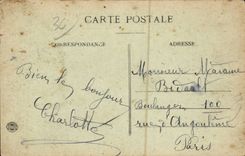 36
CARTE POSTALE
CORRESPONDANCE
ADRESSE
Bien le bonjour
Charlotte
Monsieur Madame
Boulanger 100
rue d'Angoulême
Paris